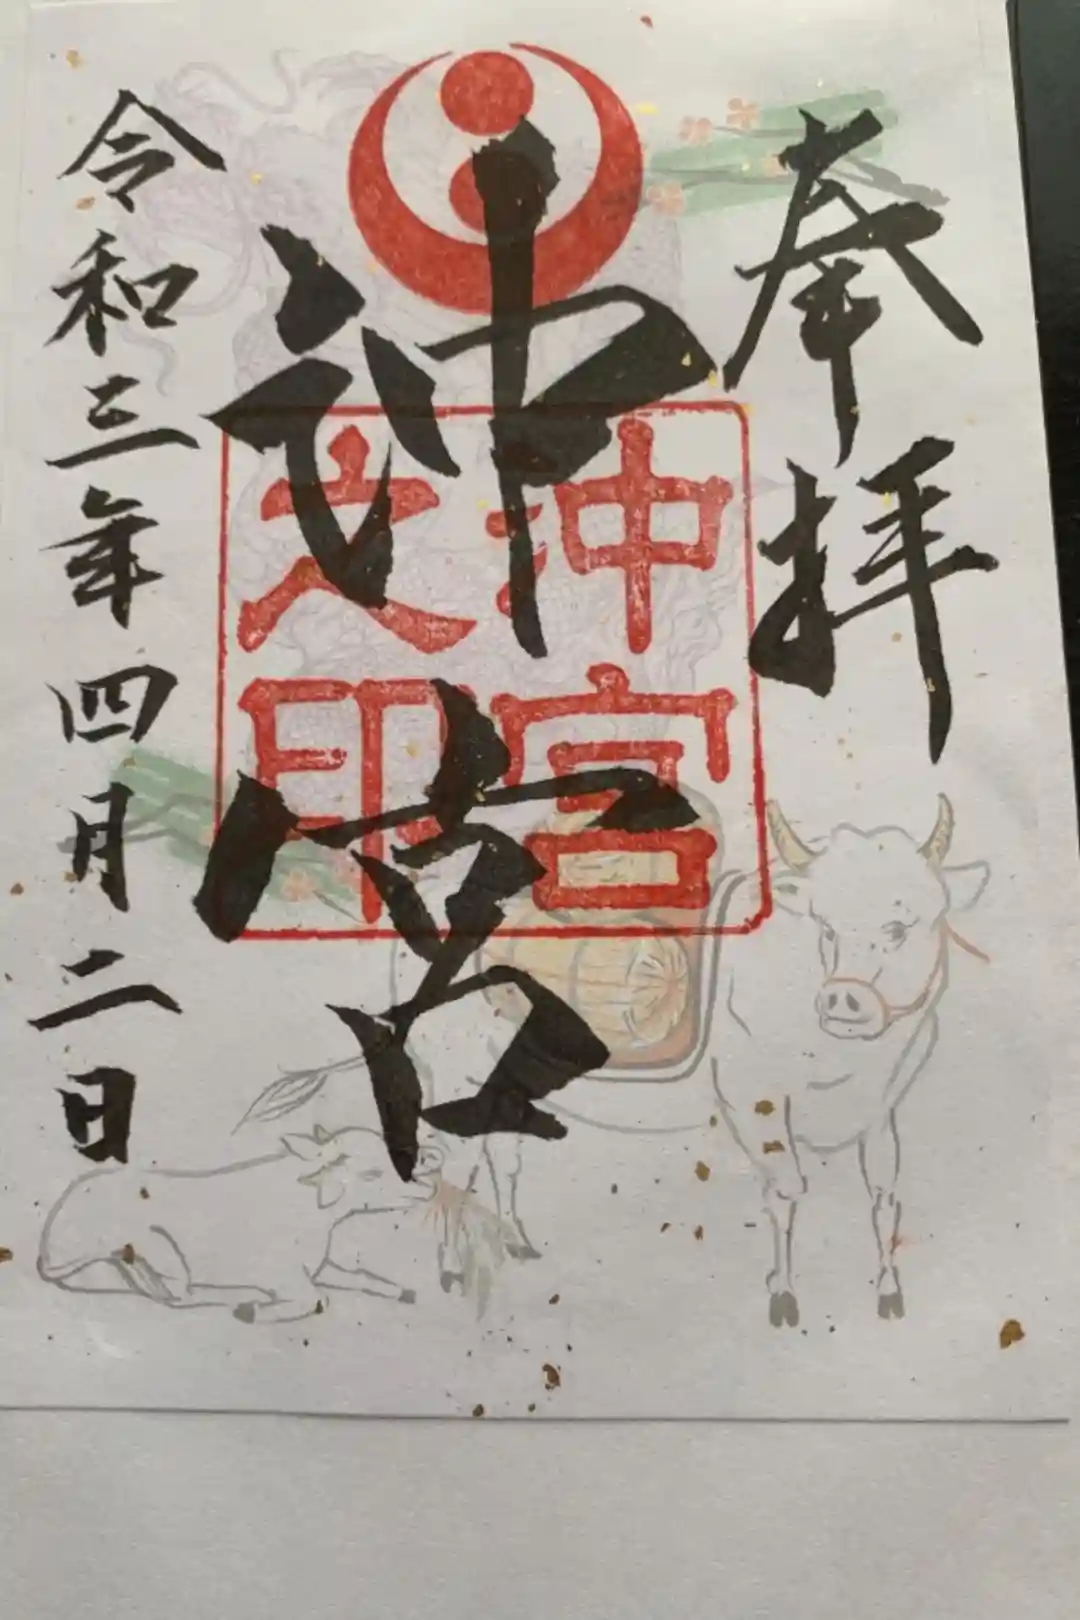 奉拝
沖宮
沖宮
之印
令和三年四月二日